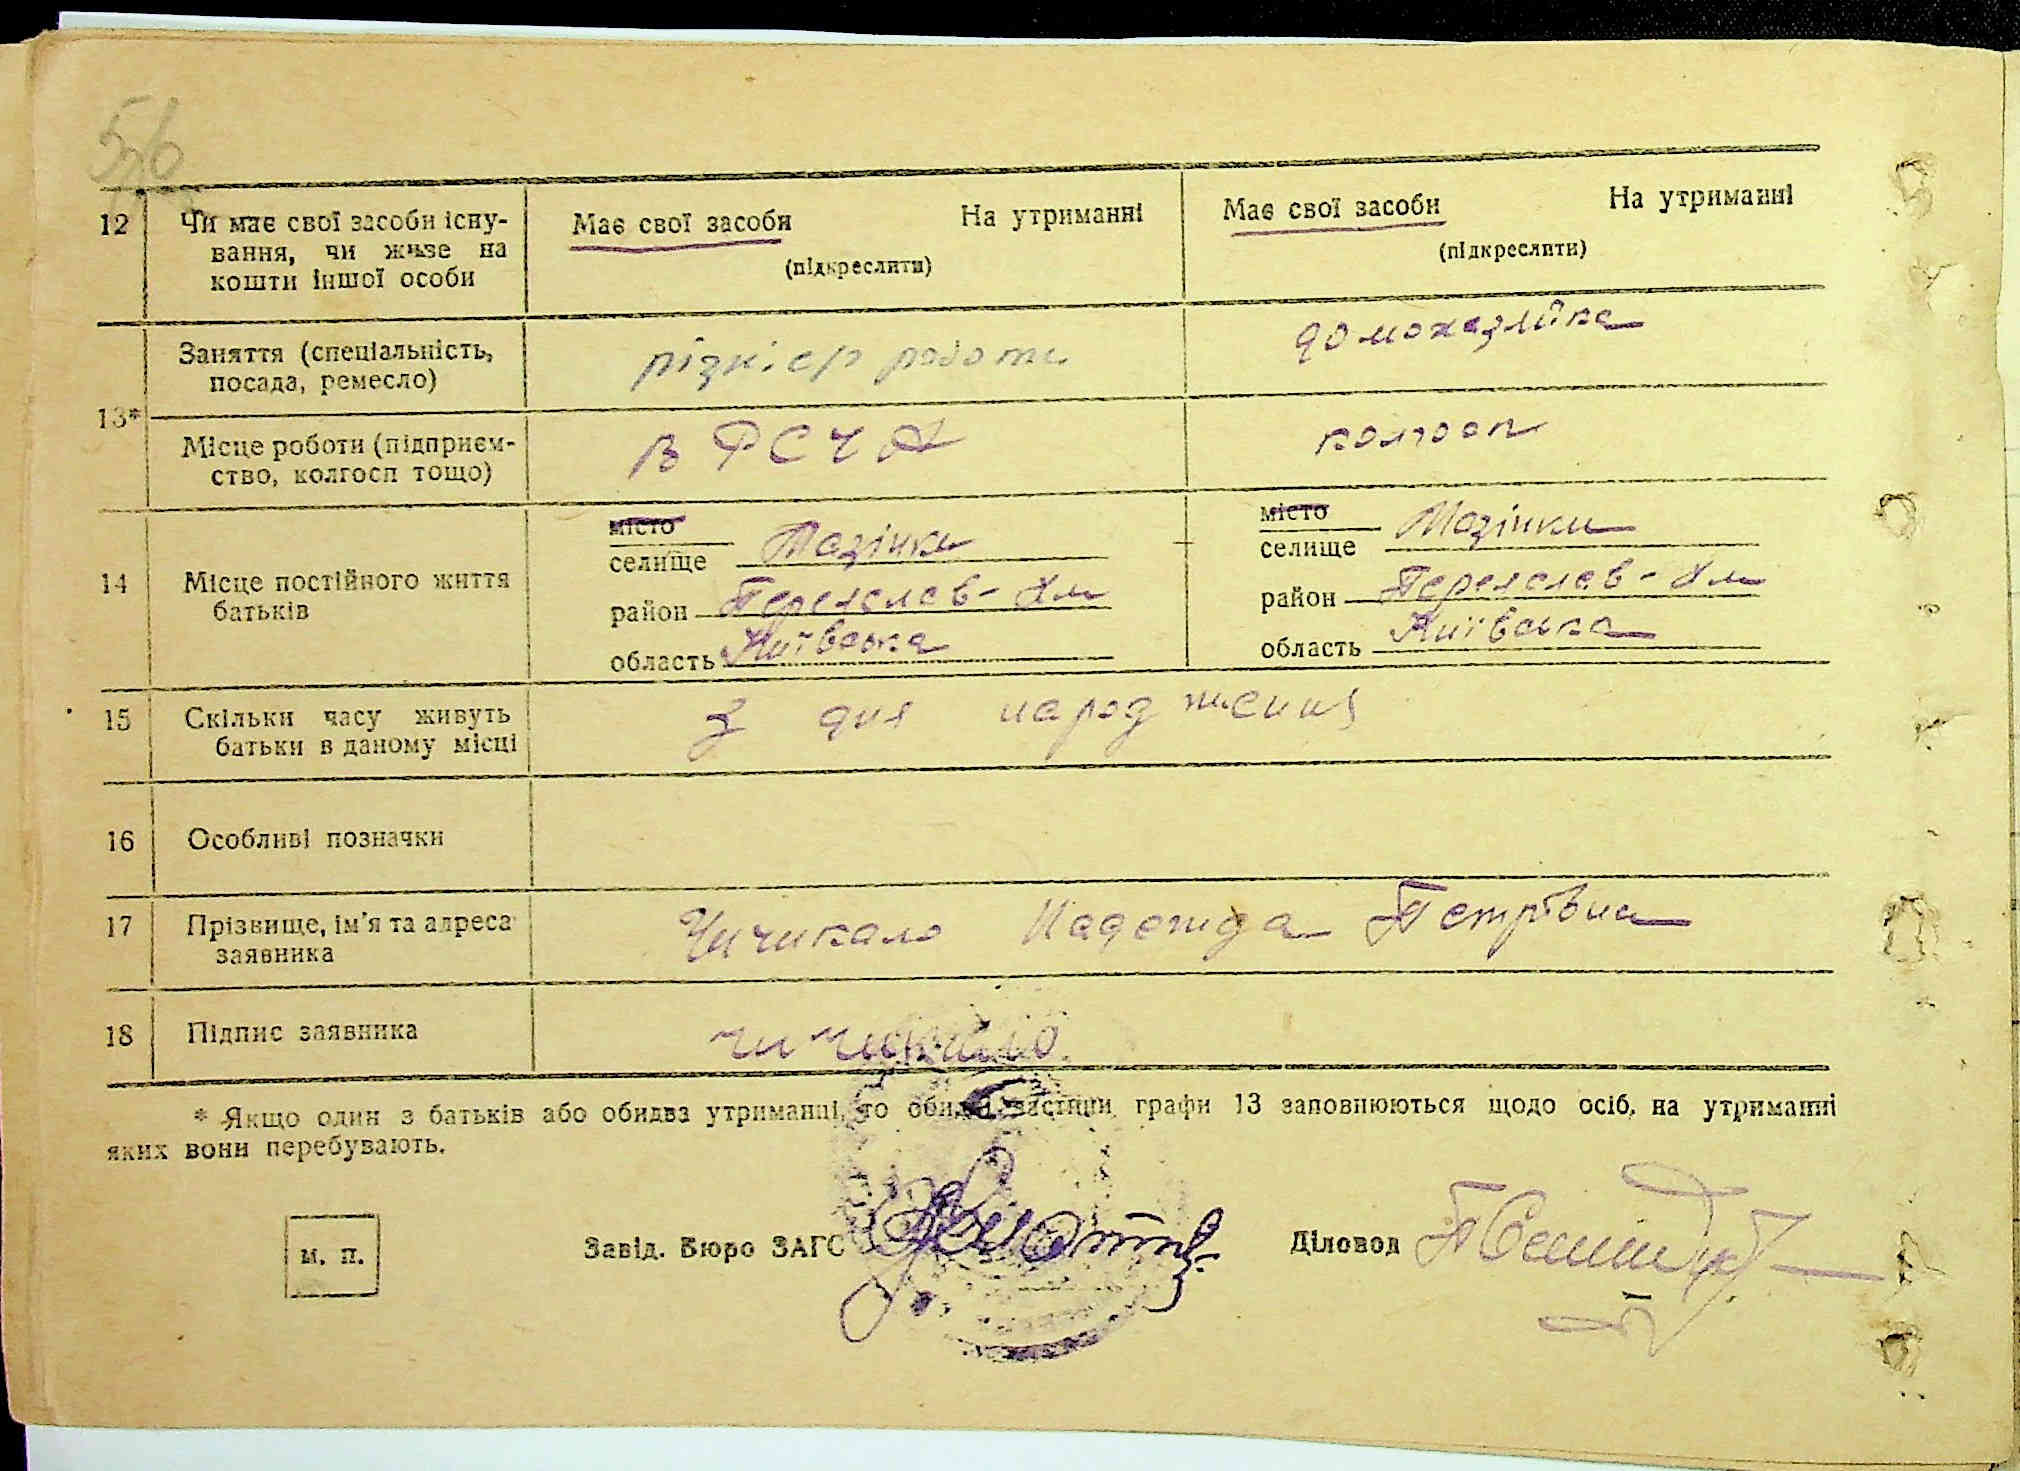 56
12 Чи має свої засоби існу- Має свої засоби На утриманні Має свої засоби На утриманні
вання, чи живе на (підкреслити) (підкреслити)
кошти іншої особи
13*
Заняття (спеціальність, різні роботи домохазяйка
посада, ремесло)
Місце роботи (підприєм- в РСЧА колгосп
ство, колгосп тощо)
14 Місце постійного життя
батьків
місто місто
селище Мазінки селище Мазінки
район Переяслав-Хм район Переяслав-Хм
область Київська область Київська
15 Скільки часу живуть з дня народження
батьки в даному місці
16 Особливі позначки
17 Прізвище, ім'я та адреса Чичикало Надежда Петрівна
заявника
18 Підпис заявника Чичикало
* Якщо один з батьків або обидва утриманці, то обидві частини графи 13 заповнюються щодо осіб, на утриманні
яких вони перебувають.
м. п. Завід. Бюро ЗАГС Діловод